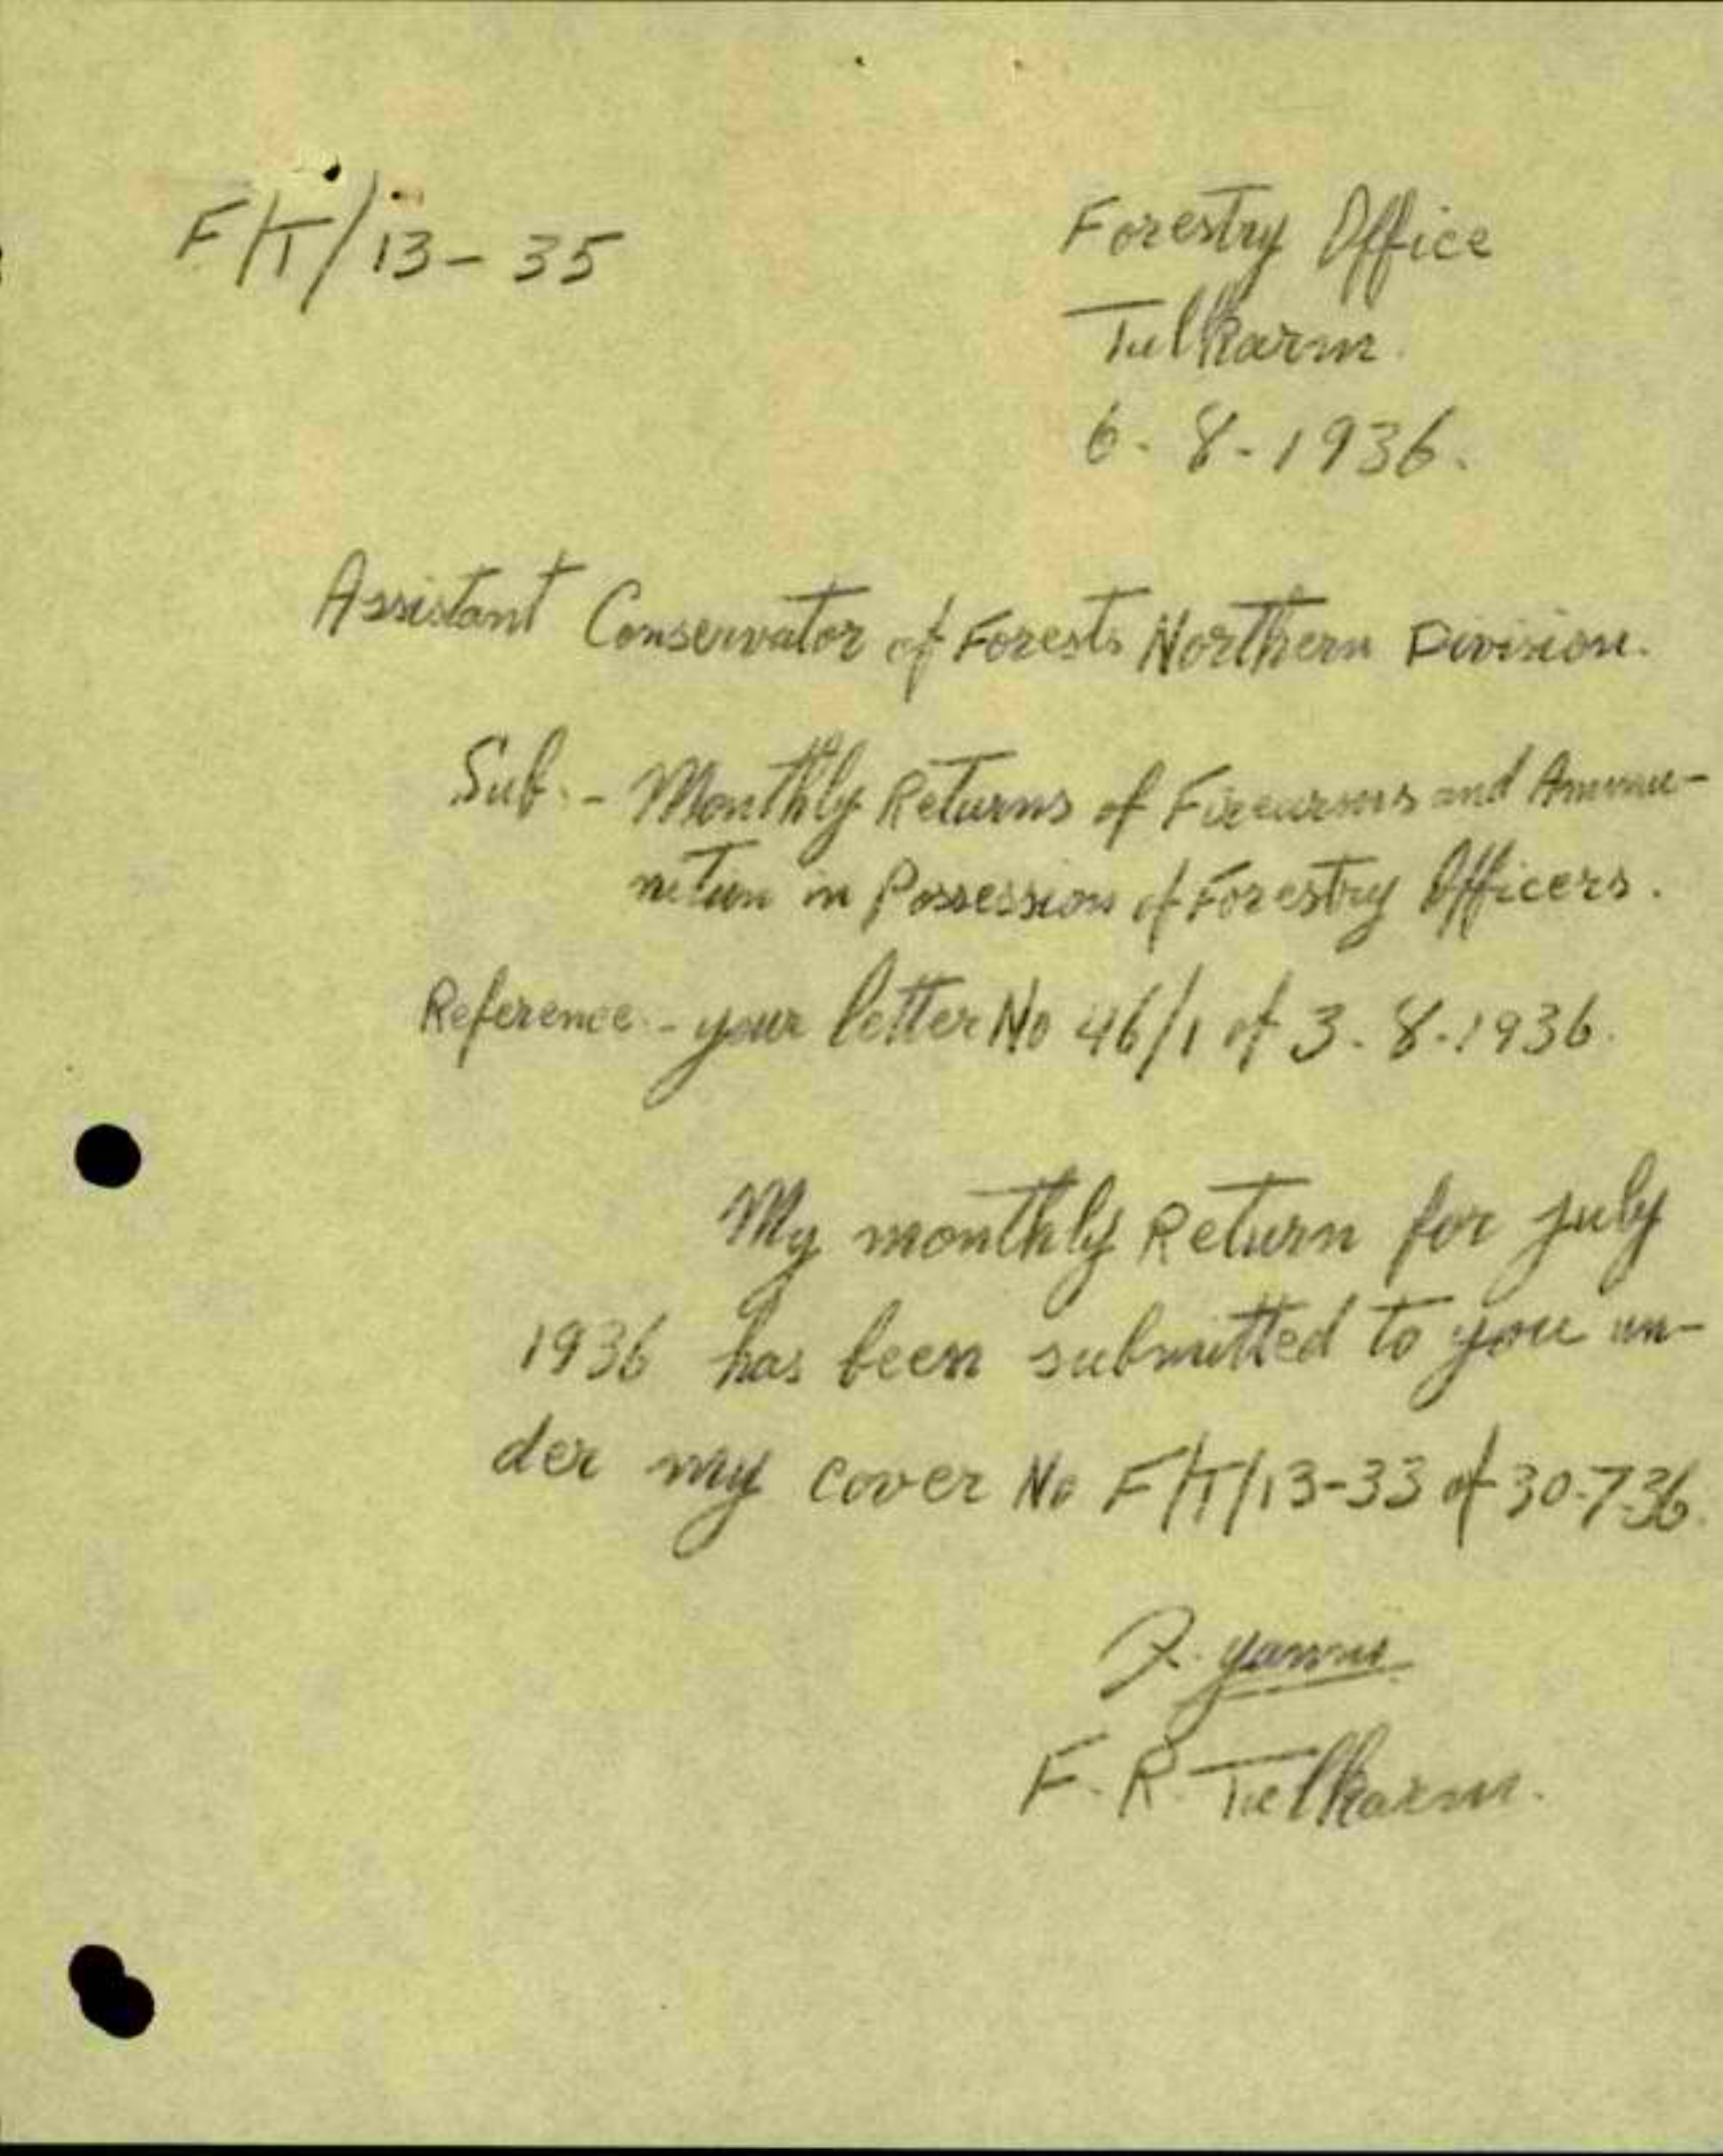 F/T/13-35
Forestry Office
Tulkarm.
6-8-1936.
Assistant Conservator of Forests Northern Division.
Sub.- Monthly Returns of Firearms and Ammu-
nition in Possession of Forestry Officers.
Reference.- your letter No 46/1 of 3.8.1936.
My monthly Return for july
1936 has been submitted to you un-
der my cover No F/T/13-33 of 30-7-36.
F. R. Tulkarm.